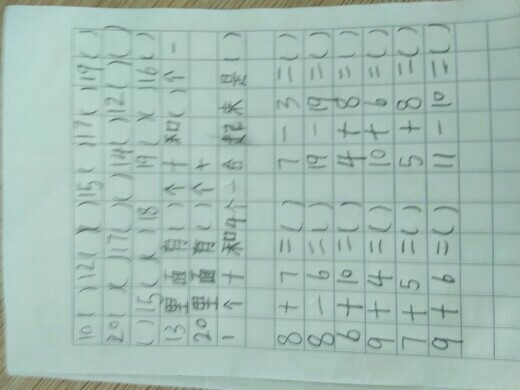 10()12()()15()17()19()
20()()17()()14()12()()
()15()()18 19()()16()
13里面有()个十和()个一
20里面有()个十
1个十和4个一合起来是()
8+7=() 7-3=()
8-6=() 19-19=()
6+10=() 4+8=()
9+4=() 10+6=()
7+5=() 5+8=()
9+6=() 11-10=()